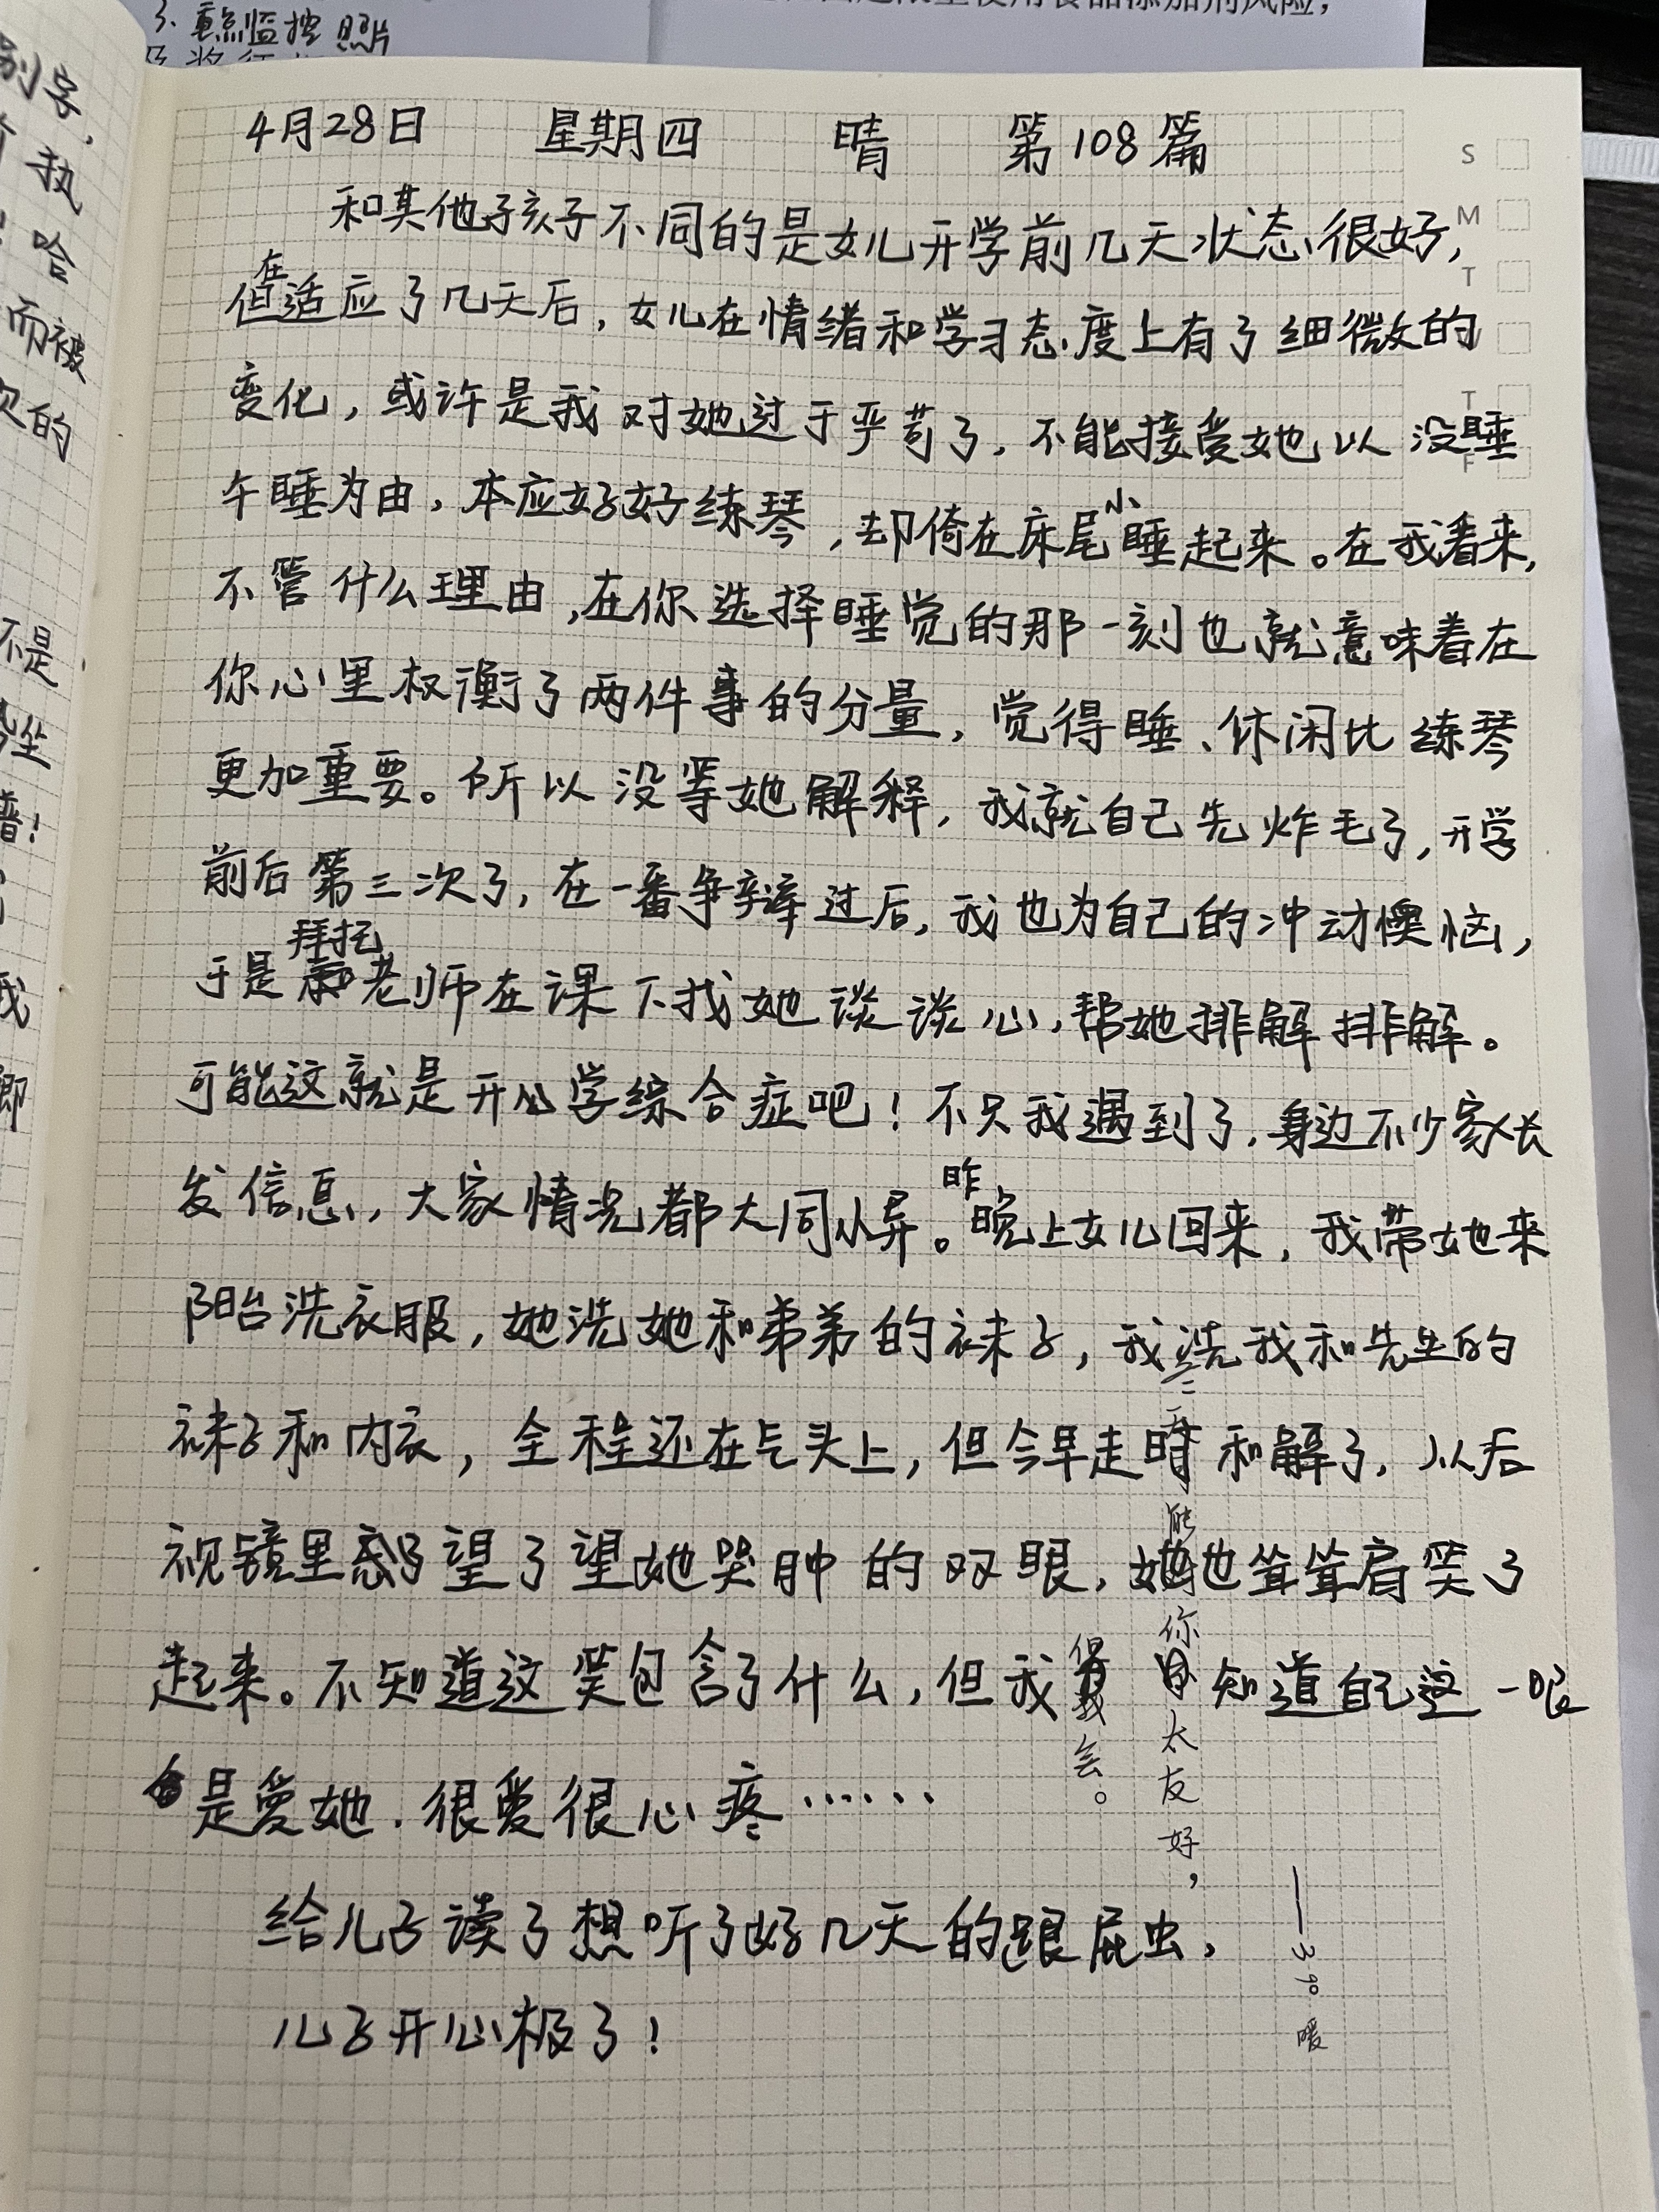 3、重点监控照片
4月28日 星期四 晴 第108篇
和其他孩子不同的是女儿开学前几天状态很好,
但在适应了几天后,女儿在情绪和学习态度上有了细微的
变化,或许是我对她过于严苛了,不能接受她以没睡
午睡为由,本应好好练琴,却倚在床尾小睡起来。在我看来,
不管什么理由,在你选择睡觉的那一刻也就意味着在
你心里权衡了两件事的分量,觉得睡、休闲比练琴
更加重要。所以没等她解释,我就自己先炸毛了,开学
前后第三次了,在一番争辩过后,我也为自己的冲动懊恼,
于是拜托老师在课下找她谈谈心,帮她排解排解。
可能这就是开学综合症吧!不只我遇到了,身边不少家长
发信息,大家情况都大同小异。昨晚上女儿回来,我带她来
阳台洗衣服,她洗她和弟弟的袜子,我洗我和先生的
袜子和内衣,全程还在气头上,但今早走时和解了,从后
视镜里望了望她哭肿的双眼,她也耸耸肩笑了
起来。不知道这笑包含了什么,但我知道自己这一眼
是爱她.很爱很心疼……
给儿子读了想听了好几天的跟屁虫,
儿子开心极了!
你太友好,
会。
——39°暖
S
M
T
T
F
别字,
执
哈
而被
次的
不是
坐
谱!
我
即